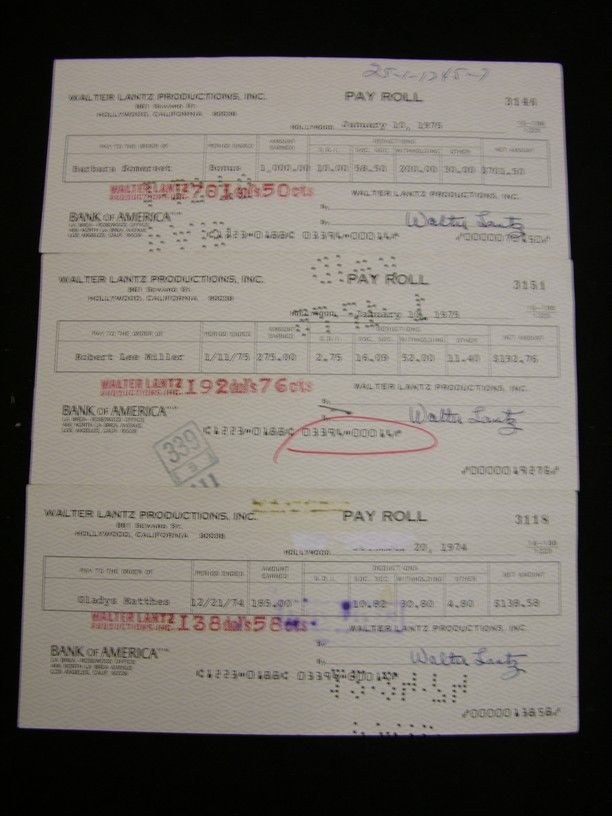 25-1-1245-7
WALTER LANTZ PRODUCTIONS, INC. PAY ROLL 3144
861 Seward St.
HOLLYWOOD, CALIFORNIA 90038
HOLLYWOOD, January 10, 1975
PAY TO THE ORDER OF PERIOD ENDED AMOUNT EARNED DEDUCTIONS NET AMOUNT
S.D.I. SOC. SEC. WITHHOLDING OTHER
Barbara Bonus 1,000.00 10.00 58.50 200.00 30.00 $701.50
WALTER LANTZ PRODUCTIONS, INC. 701 dol's 50 cts WALTER LANTZ PRODUCTIONS, INC.
By
BANK OF AMERICA Walter Lantz
LA BREA-ROSEWOOD OFFICE
LOS ANGELES, CALIF. 90036
WALTER LANTZ PRODUCTIONS, INC. PAY ROLL 3151
861 Seward St.
HOLLYWOOD, CALIFORNIA 90038
January 10, 1975
PAY TO THE ORDER OF PERIOD ENDED AMOUNT EARNED DEDUCTIONS NET AMOUNT
S.D.I. SOC. SEC. WITHHOLDING OTHER
Robert Lee Miller 1/11/75 275.00 2.75 16.09 52.00 11.40 $192.76
WALTER LANTZ PRODUCTIONS, INC. 192 dol's 76 cts WALTER LANTZ PRODUCTIONS, INC.
By
BANK OF AMERICA Walter Lantz
LA BREA-ROSEWOOD OFFICE
LOS ANGELES, CALIF. 90036
⑆1223⑉0188⑆ 03394⑉00014⑈
339
⑈0000019276⑈
WALTER LANTZ PRODUCTIONS, INC. PAY ROLL 3118
861 Seward St.
HOLLYWOOD, CALIFORNIA 90038
HOLLYWOOD, 20, 1974
PAY TO THE ORDER OF PERIOD ENDED AMOUNT EARNED DEDUCTIONS NET AMOUNT
S.D.I. SOC. SEC. WITHHOLDING OTHER
Gladys Matthes 12/21/74 185.00 10.82 30.80 4.80 $138.58
WALTER LANTZ PRODUCTIONS, INC. 138 dol's 58 cts WALTER LANTZ PRODUCTIONS, INC.
By
BANK OF AMERICA Walter Lantz
LA BREA-ROSEWOOD OFFICE
LOS ANGELES, CALIF. 90036
⑆1223⑉0188⑆
⑈0000013858⑈